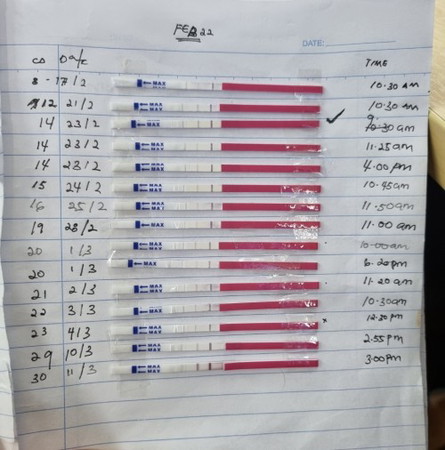 FEB 22
DATE:
CD Date TIME
8 - 17/2 MAX MAX 10.30 AM
12 21/2 MAX MAX 10.30 am
14 23/2 MAX MAX 9.30 am
14 23/2 MAX MAX 11.25am
14 23/2 MAX MAX 4.00 pm
15 24/2 MAX MAX 10.45am
16 25/2 MAX MAX 11.50am
19 28/2 MAX MAX 11.00 am
20 1/3 MAX MAX 10.00am
20 1/3 MAX 6.20pm
21 2/3 MAX MAX 11.20 am
22 3/3 MAX MAX 10.30am
23 4/3 MAX MAX 12.30 pm
29 10/3 MAX MAX 2.55pm
30 11/3 MAX MAX 3.00pm